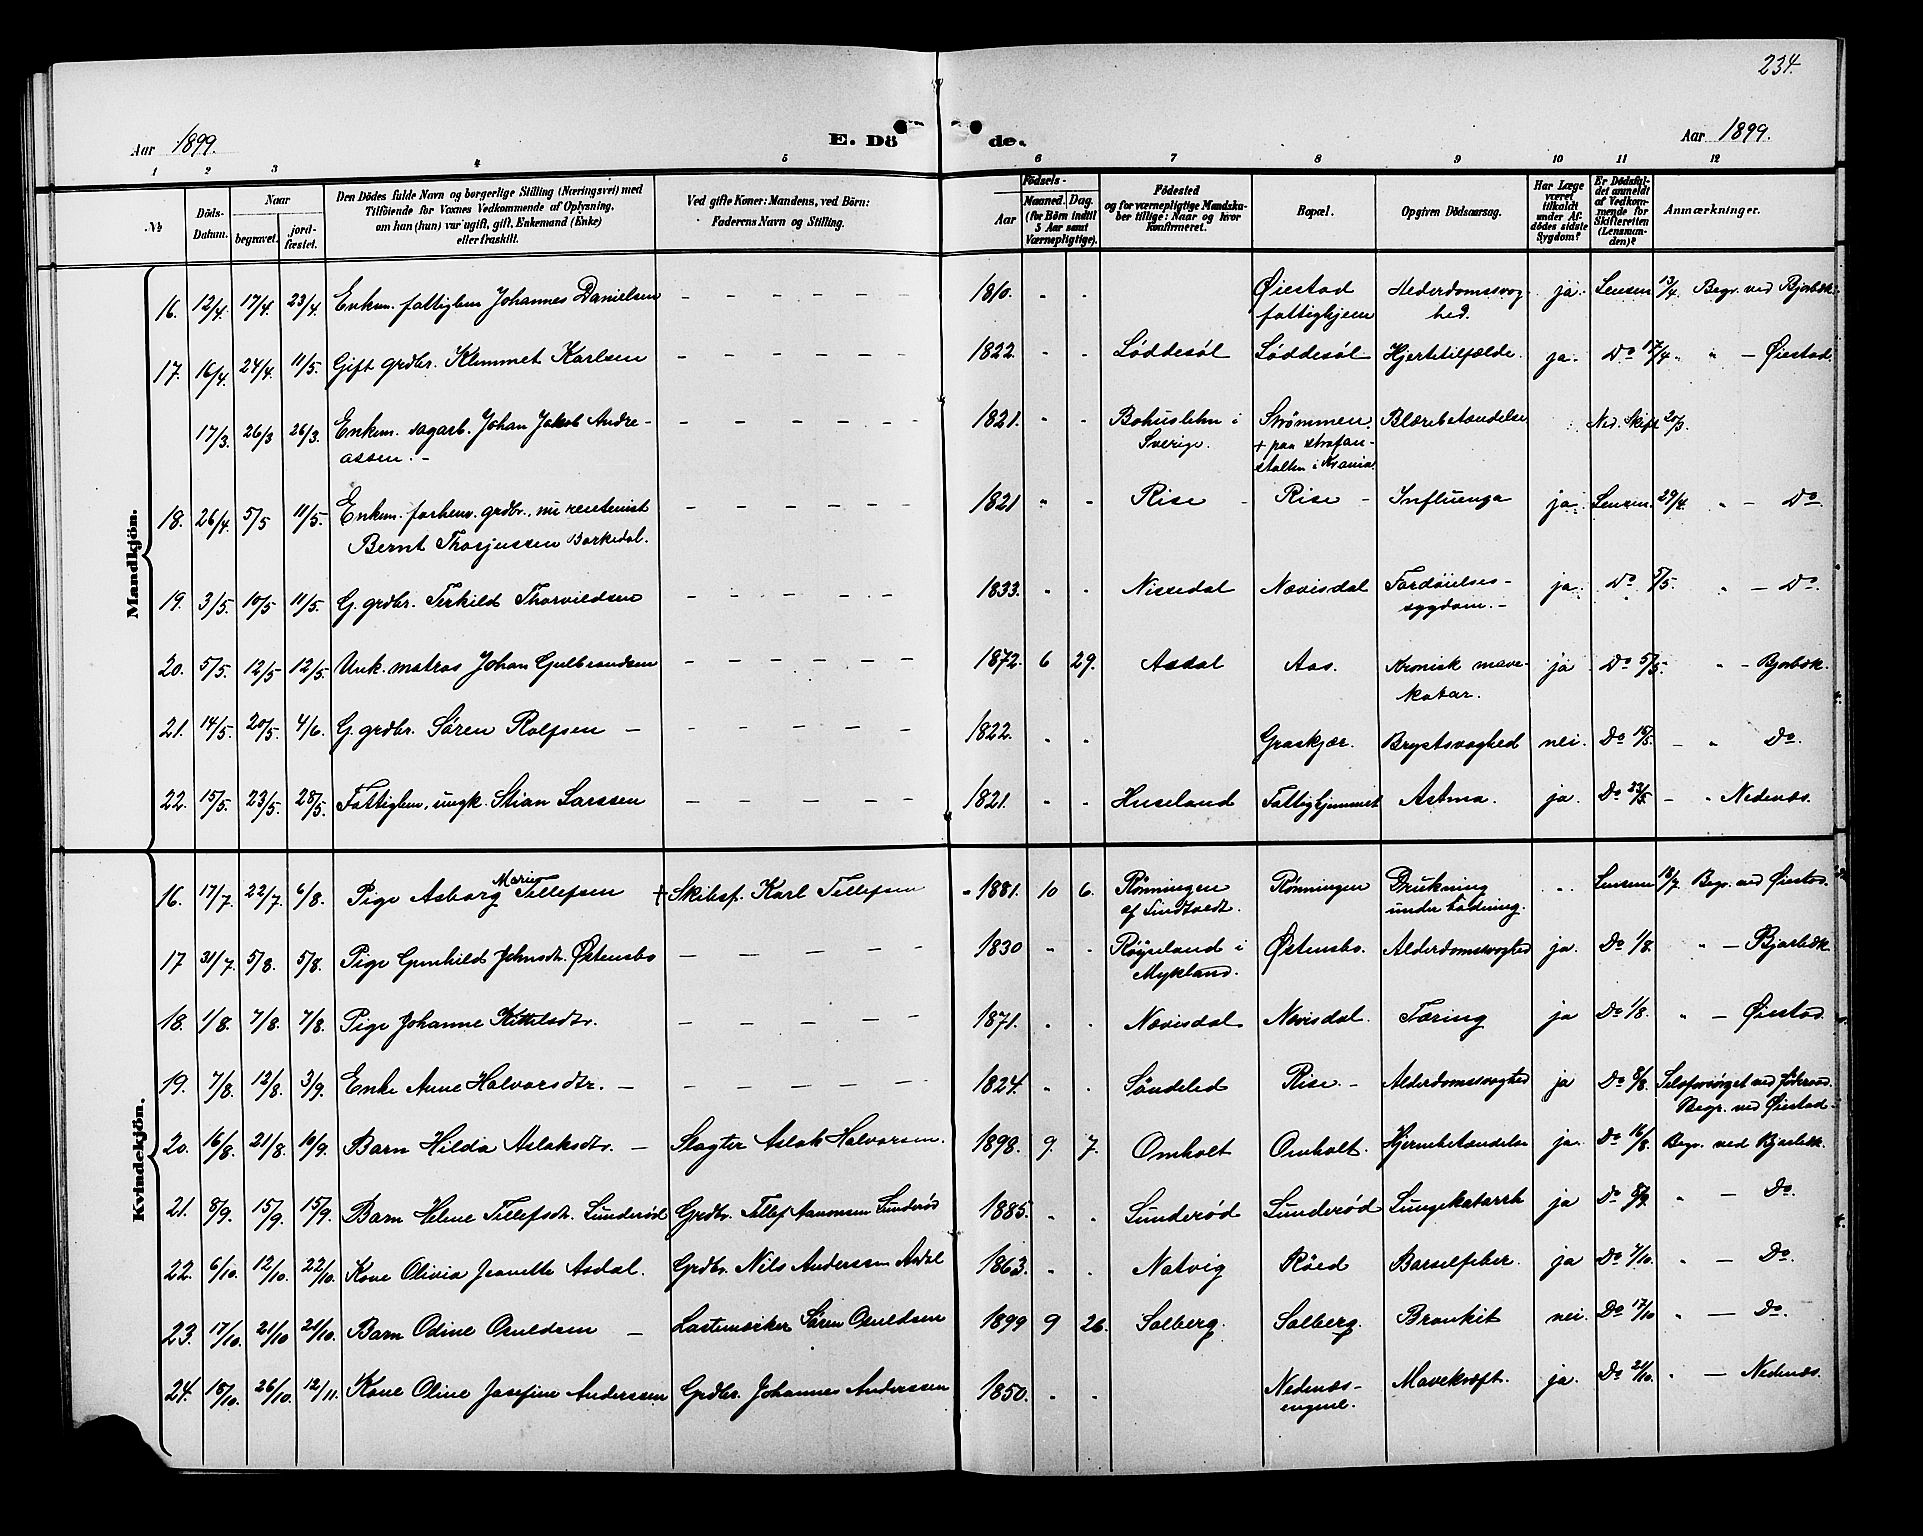 234.
Aar 1899.
E. Dö de.
Aar 1899.
1 2 3 4 5 6 7 8 9 10 11 12
№
Döds-Datum.
Naar
begravet.
jord-fæstet.
Den Dödes fulde Navn og borgerlige Stilling (Næringsvei) med
Tilföiende for Voxnes Vedkommende af Oplysning,
om han (hun) var ugift, gift, Enkemand (Enke)
eller fraskilt.
Ved gifte Koner: Mandens, ved Börn:
Faderens Navn og Stilling.
Födsels-
Aar
Maaned. Dag.
(for Börn indtil
5 Aar samt
Værnepligtige).
Födested
og for værnepligtige Mandska-
ber tillige: Naar og hvor
konfirmeret.
Bopæl.
Opgiven Dödsaarsag.
Har Læge
været
tilkaldt
under Af-
dödes sidste
Sygdom?
Er Dödsfal-
det anmeldt
af Vedkom-
mende for
Skifteretten
(Lensman-
den)?
Anmærkninger.
Mandkjön.
16. 12/4 17/4 23/4 Enkem. fattiglem Johannes Danielsen – – – – – – 1810. " " Øiestad fattighjem Alderdomssvaghed. ja. Lensm 13/4 Begr. ved Bjorbæk.
17. 16/4 24/4 11/5. Gift grdbr. Klemmet Karlsen – – – – – – 1822. " " Løddesøl Løddesøl Hjertetilfælde. ja. Do 17/4 " " – Øiestad.
17/3. 26/3 26/3. Enkem. sagarb. Johan Jakob Andre-
assen. – – – – – – – 1821. " " Bohuslehn i Sverige. Strømmen + paa strafan-
stalten i Krania. Blærebetændelse Ned. Skift 20/3.
18. 26/4. 5/5 11/5. Enkem. forhenv. grdbr., nu rentenist
Bernt Thosjussen Barkedal. – – – – – – 1821 " " Rise – Rise – Influenza ja. Lensm. 29/4. " – Do
19. 3/5. 10/5 11/5. G. grdbr. Terkild Thorvildsen – – – – – – 1833. " " Nissedal Nævisdal Fordøielses-
sygdom. – ja. Do 5/5. " – Do.
20. 5/5. 12/5 12/5. Unk. matros Johan Gulbrandsen – – – – – – 1872. 6 29. Asdal Aas. Kronisk mave-
katar. ja Do 5/5. " – Bjorbæk.
21. 14/5. 20/5. 4/6 G. grdbr. Søren Rolfsen – – – – – – – 1822. " " Graskjær. Brystsvaghed nei. Do 15/5. – " Do.
22. 15/5. 23/5. 28/5. Fattiglem, ungk. Stian Larssen – – – – – – 1821. " " Huseland Fattighjemmet Astma. ja. Do 23/5. – " Nedenæs.
Kvindekjön.
16. 17/7. 22/7. 6/8. Pige Asborg Marie Tellefsen + Skibsf. Karl Tellefsen " 1881. 10 6. Rønningen af Lindtvedt. Rønningen Drukning under badning. " " Lensm 18/7. Begr. ved Øiestad.
17 31/7. 5/8. 5/8. Pige Gunhild Johnsdtr. Østensbo – – – – – 1830 " " Røyseland i Mykland. Østensbo. Alderdomssvaghed ja. Do 1/8. " – Bjorbæk.
18. 1/8. 7/8. 7/8. Pige Johanne Kittelsdtr. – – – – – – 1871. " " Nævisdal Nævisdal. Tæring ja Do 1/8. " – Øiestad.
19. 7/8. 12/8. 3/9. Enke Anne Halvorsdtr. – – – – – – – 1824. " " Søndeled Rise. – Alderdomssvaghed ja Do 8/8.
Begr. ved Øiestad.
20. 16/8. 21/8. 10/9. Barn Hilda Aslaksdtr. – Slagter Aslak Halvorsen. 1898. 9. 7. Omholt Omholt. Hjernebetændelse ja. Do 16/8. Begr. ved Bjorbæk.
21. 8/9. 15/9. 15/9. Barn Helene Tellefsdtr. Lunderød Grdbr. Tellef Aanonsen Lunderød 1885. " " Lunderød Lunderød Lungekatarrh ja Do 8/9. " – Do.
22. 6/10. 12/10. 22/10. Kone Olivia Jeanette Asdal. Grdbr. Nils Anderssen Asdal 1863. " " Natvig Røed Barselfeber. ja Do 7/10. " – Do.
23. 17/10. 21/10 21/10. Barn Odine Onuldsen – Lastemærker Søren Onuldsen 1899 9 26. Solberg. Solberg. Bronkit nei. Do 17/10 " – Do.
24. 18/10. 26/10. 12/11. Kone Oline Josefine Anderssen Grdbr. Johannes Anderssen 1850. " " Nedenæs-
engene. Mavekræft. ja. Do 21/10. " – Nedenæs.